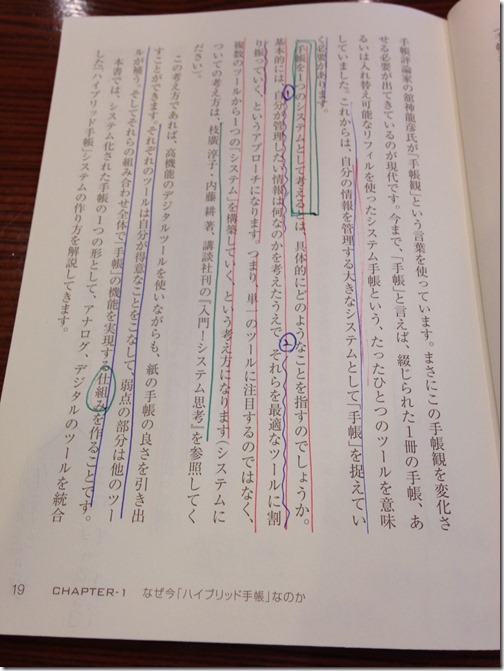 手帳評論家の舘神龍彦氏が「手帳観」という言葉を使っています。まさにこの手帳観を変化さ
せる必要が出てきているのが現代です。今まで、「手帳」と言えば、綴じられた1冊の手帳、あ
るいは入れ替え可能なリフィルを使ったシステム手帳という、たったひとつのツールを意味
していました。これからは、自分の情報を管理する大きなシステムとして「手帳」を捉えてい
く必要があります。
「手帳を1つのシステムとして考える」とは、具体的にどのようなことを指すのでしょうか。
基本的には、自分が管理したい情報は何なのかを考えたうえで、それらを最適なツールに割
り振っていく、というアプローチになります。つまり、単一のツールに注目するのではなく、
複数のツールから1つの「システム」を構築していく、という考え方になります(システムに
ついての考え方は、枝廣 淳子・内藤 耕 著、講談社刊の『入門!システム思考』を参照してく
ださい)。
この考え方であれば、高機能のデジタルツールを使いながらも、紙の手帳の良さを引き出
すことができます。それぞれのツールは自分が得意なことをこなして、弱点の部分は他のツー
ルが補う。そしてそれらの組み合わせ全体で「手帳」の機能を実現する仕組みを作ることです。
本書では、システム化された手帳の1つの形として、アナログ、デジタルのツールを統合
した「ハイブリッド手帳」システムの作り方を解説してきます。
1
2
19 CHAPTER-1 なぜ今「ハイブリッド手帳」なのか